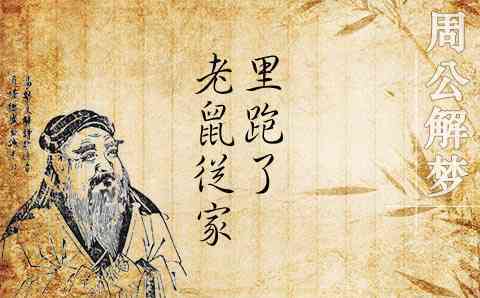 周公解梦
老鼠從家
里跑了